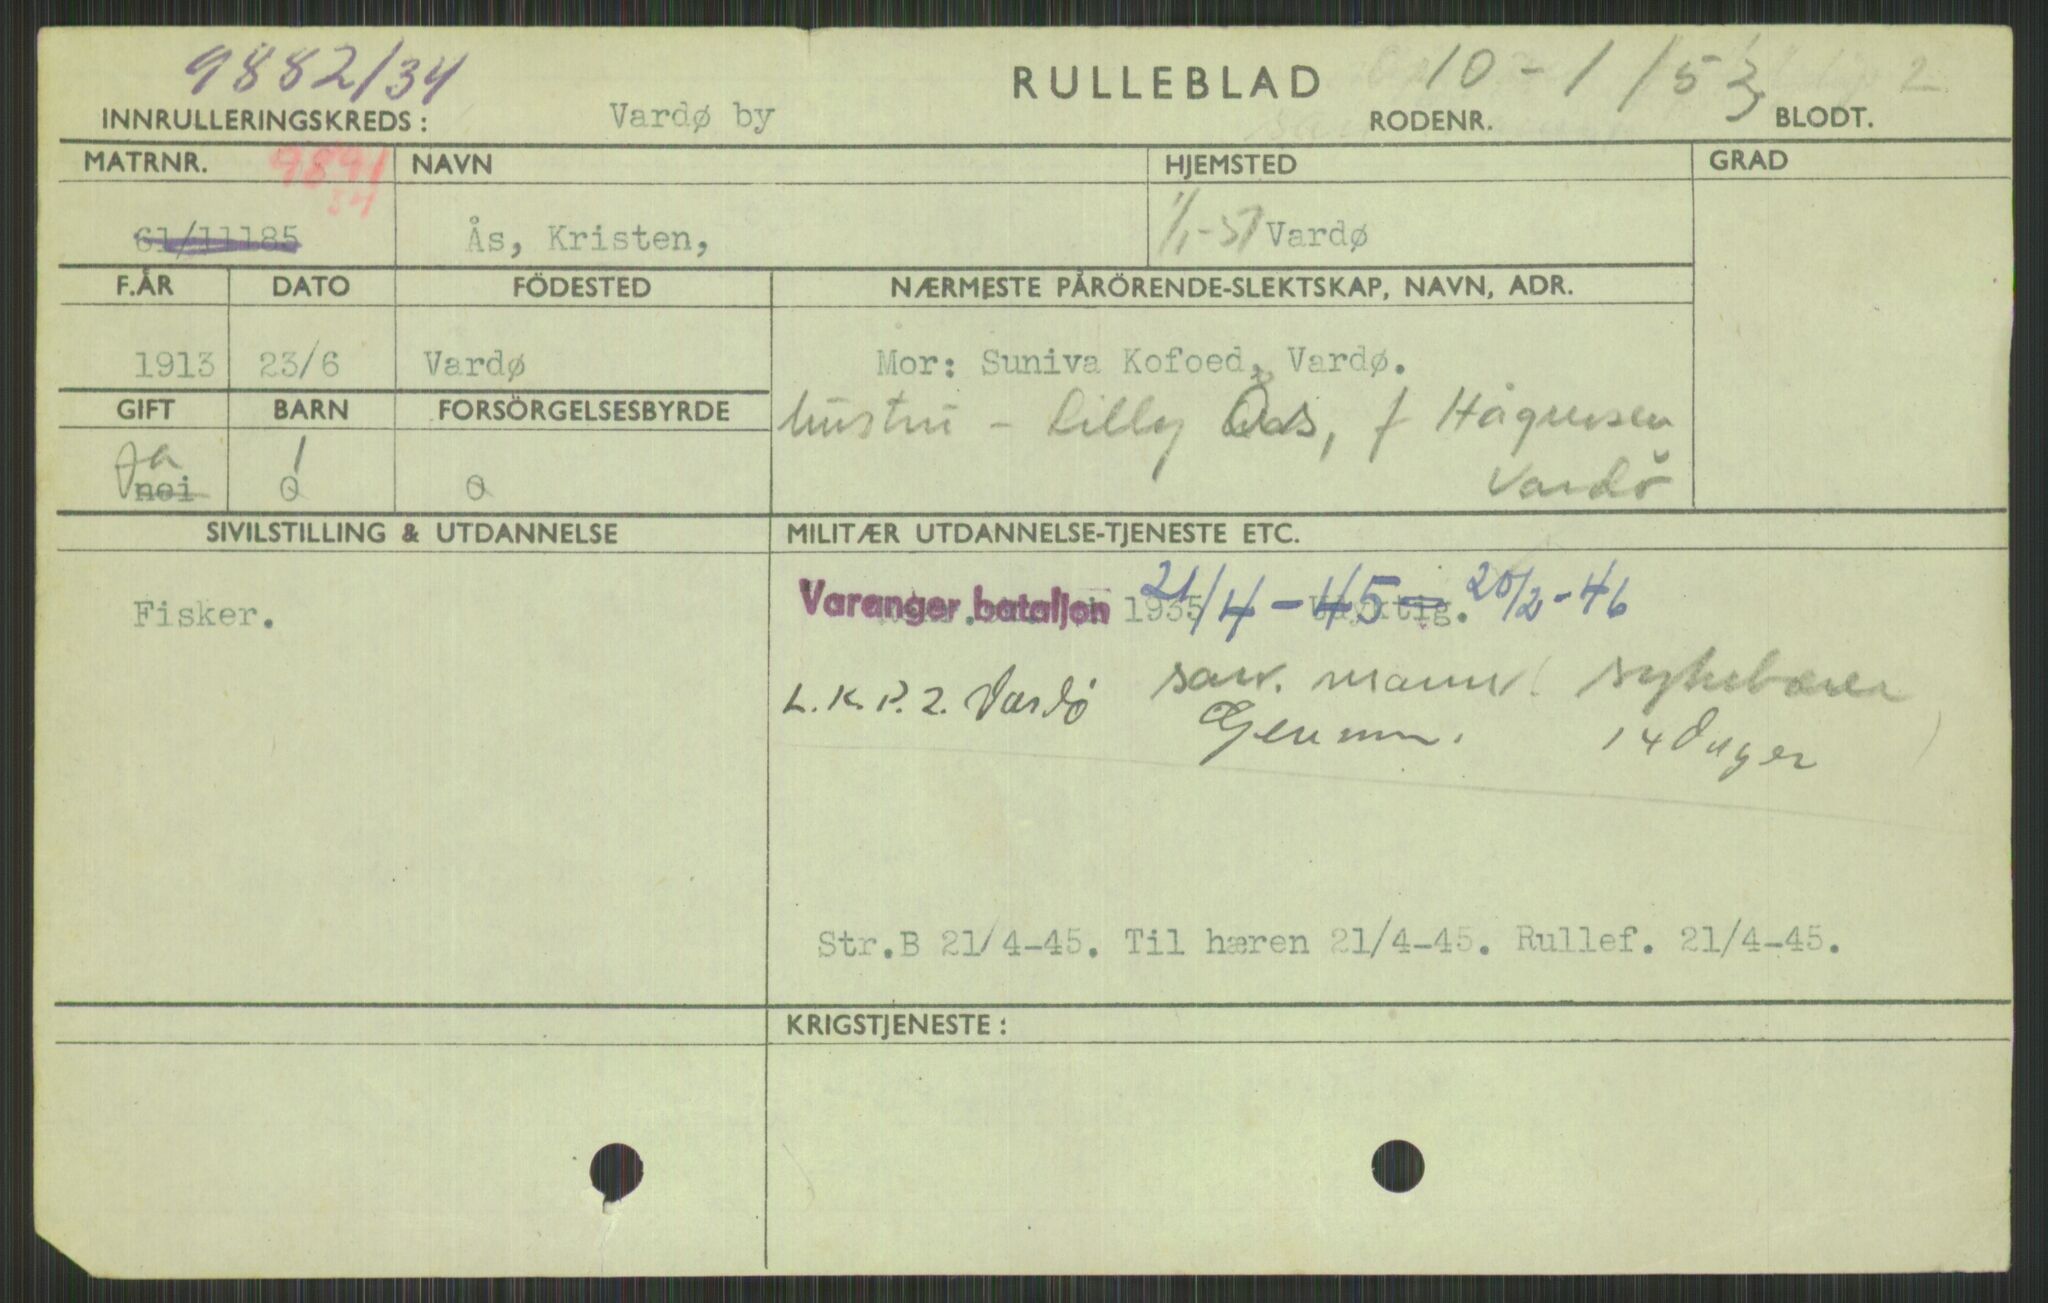 9882/34
RULLEBLAD 10-1/53 2
INNRULLERINGSKREDS: Vardø by RODENR. BLODT.
MATRNR. 9891 NAVN HJEMSTED GRAD
34
61/11185 Ås, Kristen, 1/1-57 Vardø
F.ÅR DATO FÖDESTED NÆRMESTE PÅRÖRENDE-SLEKTSKAP, NAVN, ADR.
1913 23/6 Vardø Mor: Suniva Kofoed, Vardø.
GIFT BARN FORSÖRGELSESBYRDE hustru - Lilly Ås, f Hågensen
Ja 1 Vardö
nei 0 0
SIVILSTILLING & UTDANNELSE MILITÆR UTDANNELSE-TJENESTE ETC.
Fisker. Varanger bataljon 1935 21/4-45 - 20/2-46
L.K.P.2. Vardö san. mann. sykebærer
Gj.en mm. 14 Dager
Str.B 21/4-45. Til hæren 21/4-45. Rullef. 21/4-45.
KRIGSTJENESTE: